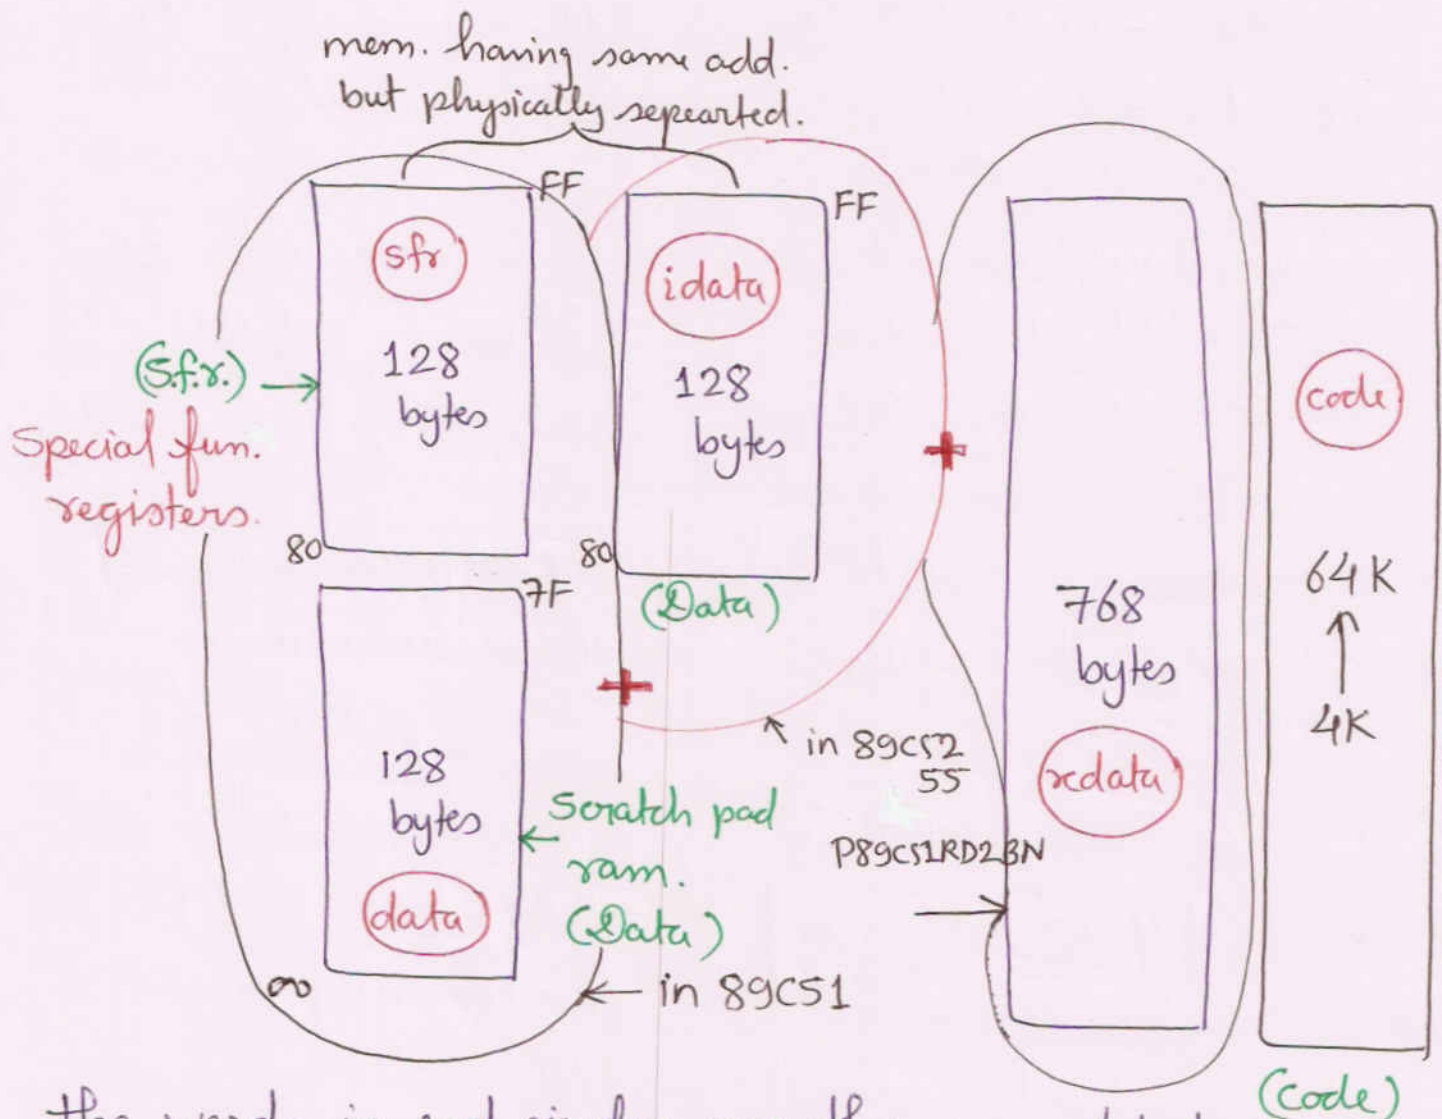 mem. having same add.
but physically sepearted.
FF
sfr
128
bytes
80
(S.f.r.)
Special fun.
registers.
FF
idata
128
bytes
80
(Data)
7F
128
bytes
data
00
Scratch pad
ram.
(Data)
in 89C51
in 89C52
55
P89C51RD2BN
768
bytes
xdata
code
64K
4K
(Code)